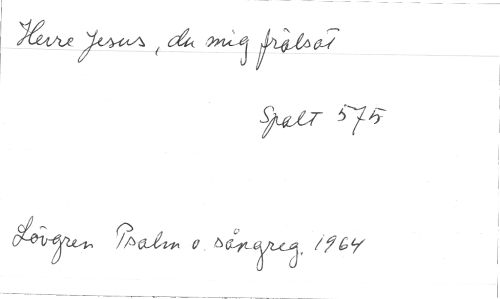 Herre Jesus, du mig frälsat
Spalt 575
Lövgren Psalm o. sångreg. 1964